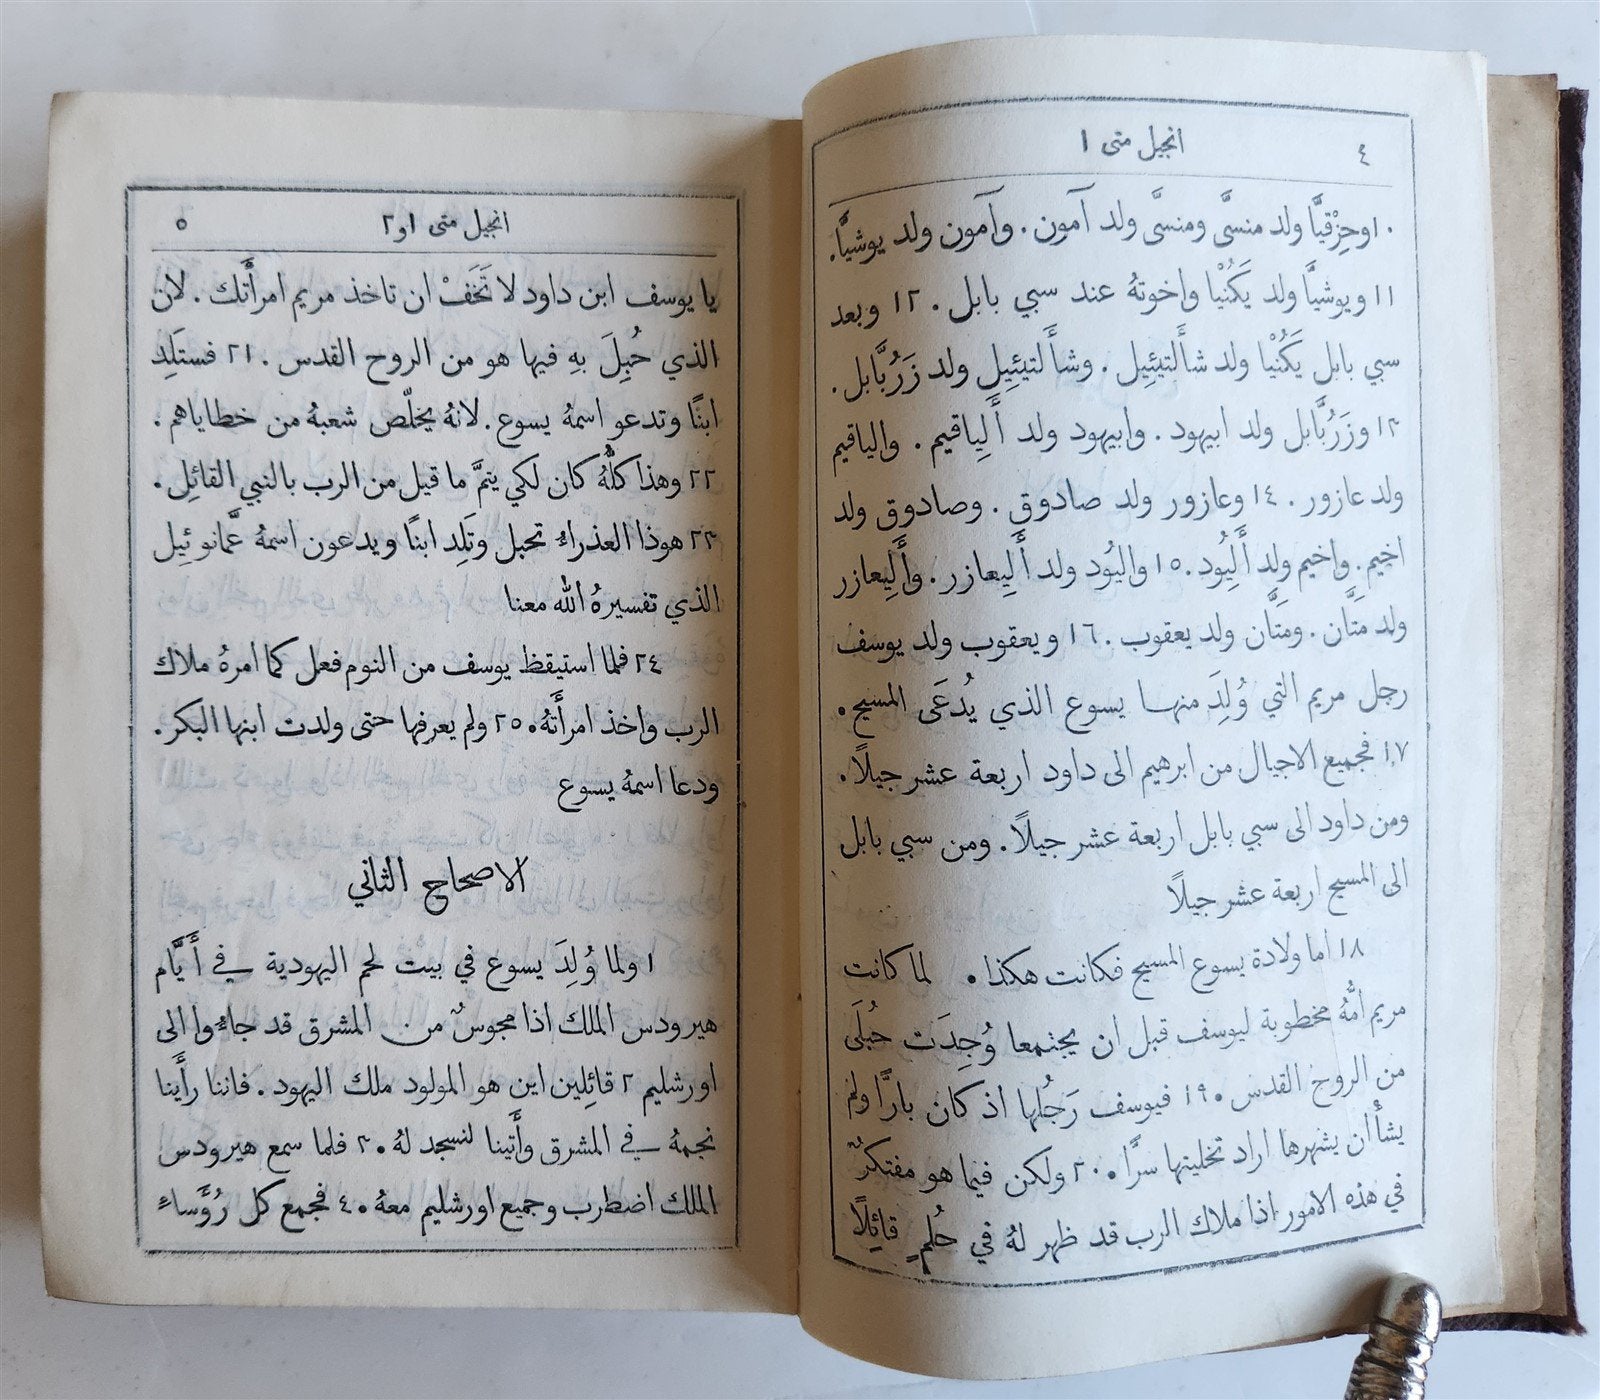 ٤ انجيل متى ١
١٠وحِزْقيَّا ولد منسَّى ومنسَّى ولد آمون. وآمون ولد يوشيَّا.
١١ ويوشيَّا ولد يَكُنْيا واخوتهُ عند سبي بابل. ١٢ وبعد
سبي بابل يَكُنْيا ولد شأَلتيئِيل. وشأَلتيئِيل ولد زَرُبَّابل.
١٣ وزَرُبَّابل ولد ابيهود. وابيهود ولد أَلِياقيم. والياقيم
ولد عازور. ١٤ وعازور ولد صادوق. وصادوق ولد
اخيم. واخيم ولد أَلِيُود. ١٥ واليُود ولد أَلِيعازر. وأَلِيعازر
ولد متَّان. ومتَّان ولد يعقوب. ١٦ ويعقوب ولد يوسف
رجل مريم التي وُلِدَ منها يسوع الذي يُدعَى المسيح.
١٧ فجميع الاجيال من ابرهيم الى داود اربعة عشر جيلًا.
ومن داود الى سبي بابل اربعة عشر جيلًا. ومن سبي بابل
الى المسيح اربعة عشر جيلًا
١٨ اما ولادة يسوع المسيح فكانت هكذا. لما كانت
مريم امُّهُ مخطوبة ليوسف قبل ان يجتمعا وُجِدَت حُبلَى
من الروح القدس. ١٩ فيوسف رَجُلها اذ كان بارًّا ولم
يشأْ ان يشهرها اراد تخليتها سرًّا. ٢٠ ولكن فيما هو مفتكرٌ
في هذه الامور اذا ملاك الرب قد ظهر لهُ في حُلمٍ قائِلًا
انجيل متى ١و٢ ٥
يا يوسف ابن داود لا تَخَفْ ان تاخذ مريم امرأَتك. لان
الذي حُبِلَ بهِ فيها هو من الروح القدس. ٢١ فستَلِد
ابنًا وتدعو اسمهُ يسوع. لانهُ يخلّص شعبهُ من خطاياهم.
٢٢ وهذا كلُّهُ كان لكي يتمَّ ما قيل من الرب بالنبي القائِل.
٢٣ هوذا العذراءُ تحبل وتَلِد ابنًا ويدعون اسمهُ عمَّانوئِيل
الذي تفسيرهُ الله معنا
٢٤ فلما استيقظ يوسف من النوم فعل كما امرهُ ملاك
الرب واخذ امرأَتهُ. ٢٥ ولم يعرفها حتى ولدت ابنها البكر.
ودعا اسمهُ يسوع
الاصحاح الثاني
١ ولما وُلِدَ يسوع في بيت لحم اليهودية في أَيَّام
هيرودس الملك اذا مجوسٌ من المشرق قد جاءُوا الى
اورشليم ٢ قائِلين اين هو المولود ملك اليهود. فاننا رأَينا
نجمهُ في المشرق وأَتينا لنسجد لهُ. ٣ فلما سمع هيرودس
الملك اضطرب وجميع اورشليم معهُ. ٤ فجمع كل رُؤَساءِ